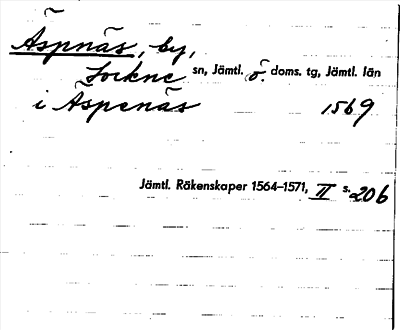 Äspnäs, by,
Lockne sn, Jämtl. ö. doms. tg, Jämtl. län
i Äspenäs 1569
Jämtl. Räkenskaper 1564–1571, II s. 206